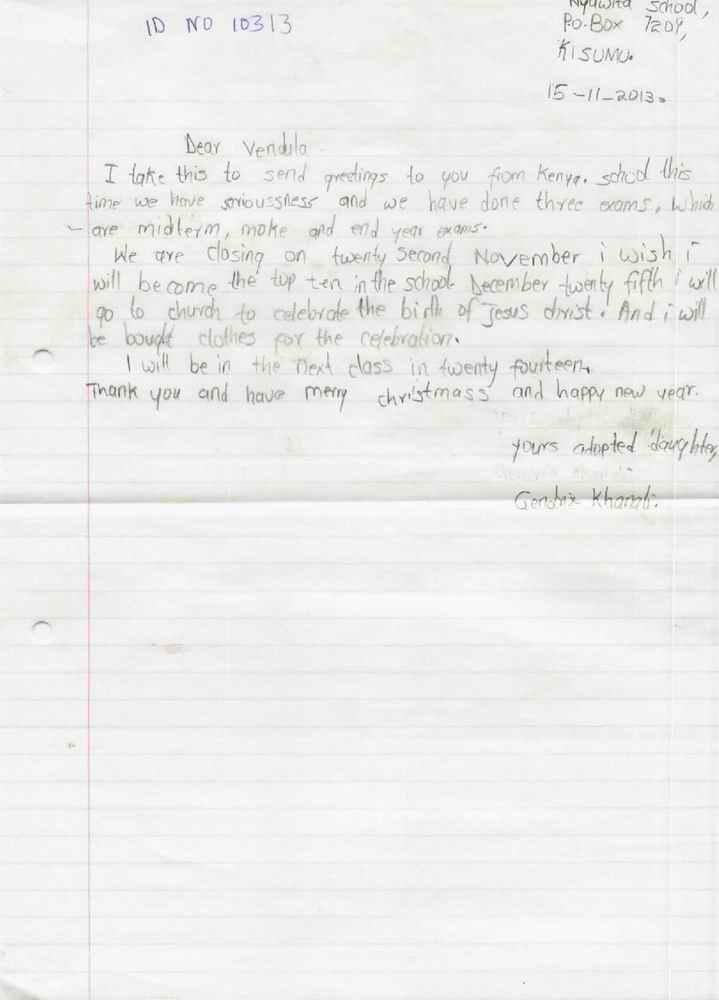 ID NO 10313
School,
P.O. Box 7209,
KISUMU.
15-11-2013.
Dear Vendula
I take this to send greetings to you from Kenya. school this
time we have serioussness and we have done three exams, which
are midterm, moke and end year exams.
We are closing on twenty second November i wish i
will become the top ten in the school December twenty fifth i will
go to church to celebrate the birth of jesus christ. And i will
be bought clothes for the celebration.
I will be in the next class in twenty fourteen.
Thank you and have merry christmass and happy new year.
yours adopted daughter,